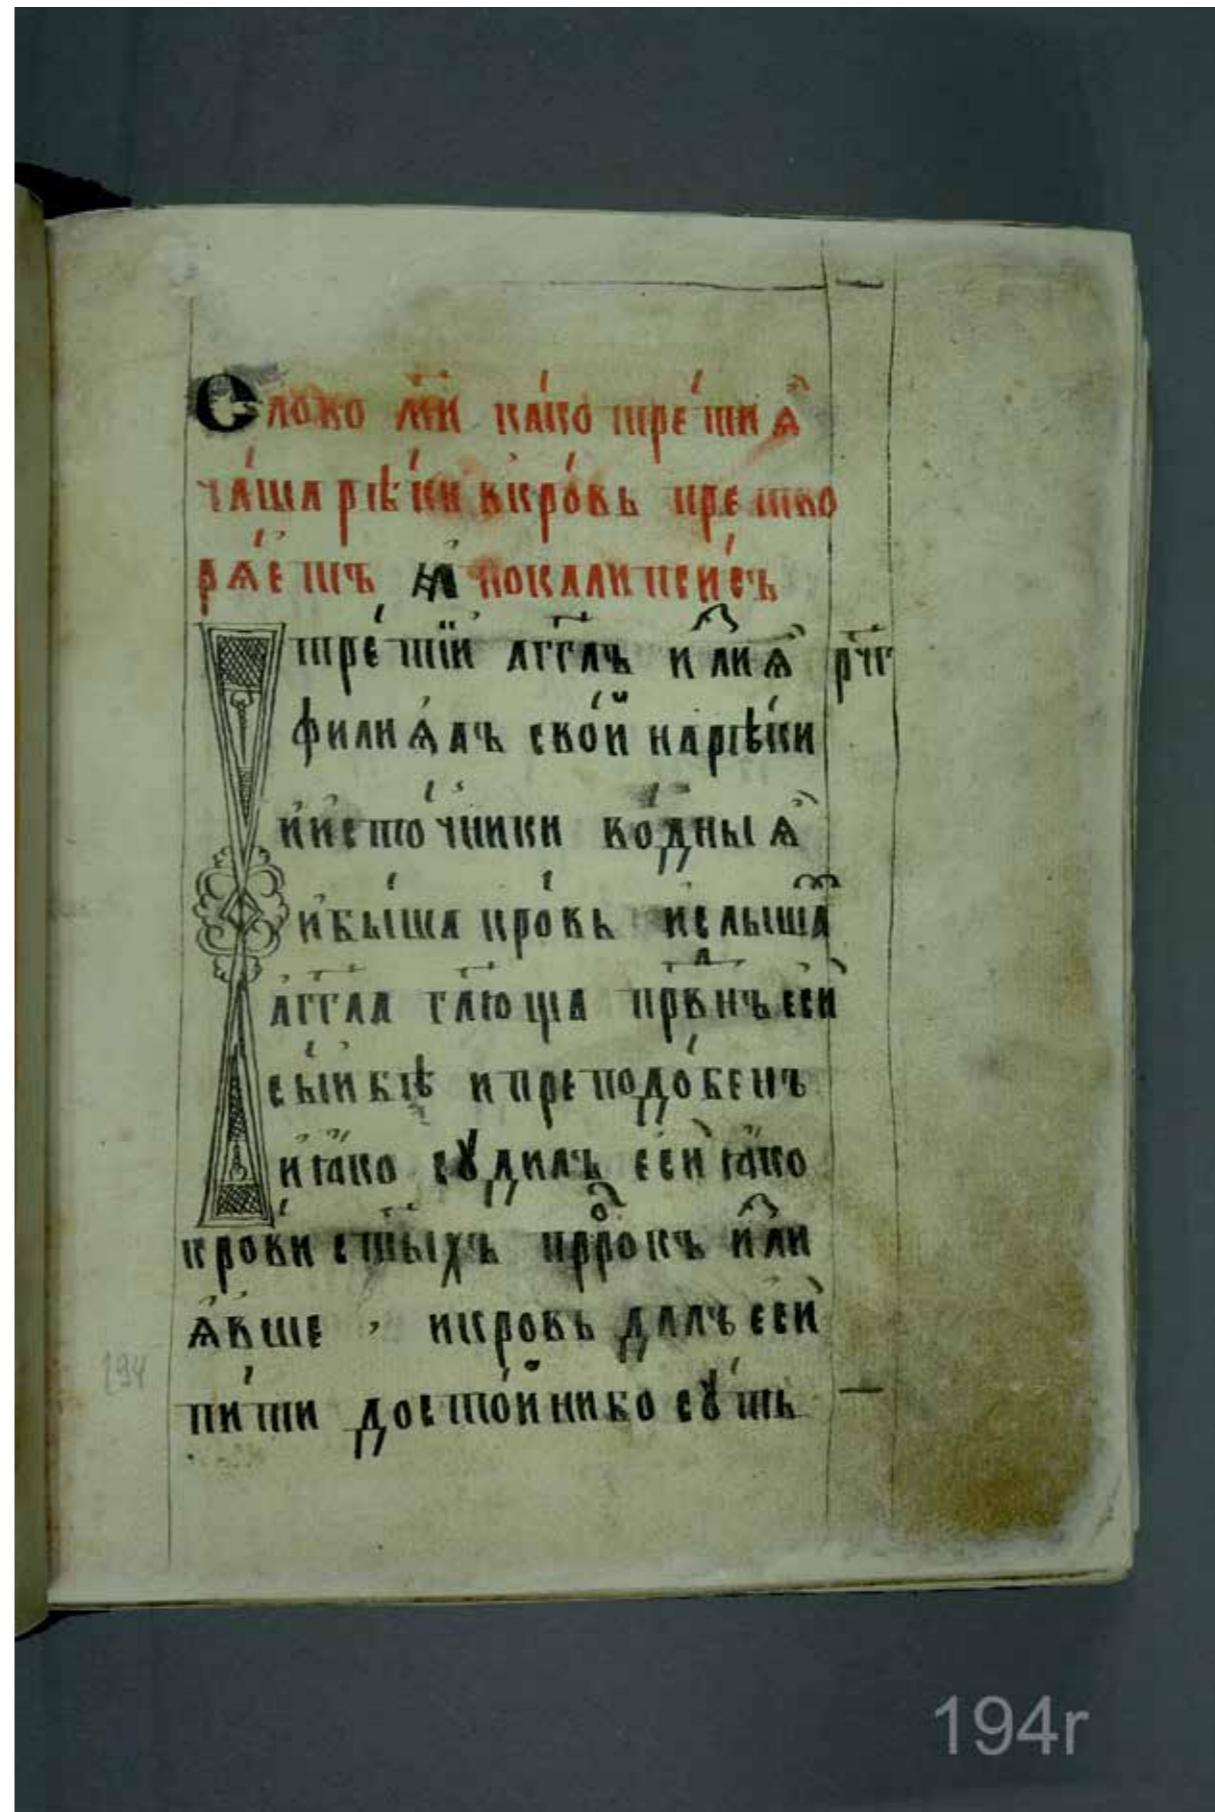 Слово м҃и како третиѧ
чаша рѣки вкровь претво
рѧетъ апокалипсисъ
И третїй аг҃глъ излиѧ рч҃г
фиꙗлъ свой нарѣки
иисточники водныѧ
ибыша кровь ислыша
аг҃гла гл҃юща првⷣнъ еси
сыи бѣ и преподобенъ
иꙗко сꙋдилъ еси ꙗко
крови ст҃ыхъ пррⷪокъ изли
ѧвше , икровь далъ еси
пити достойнибо сꙋть
194
194r